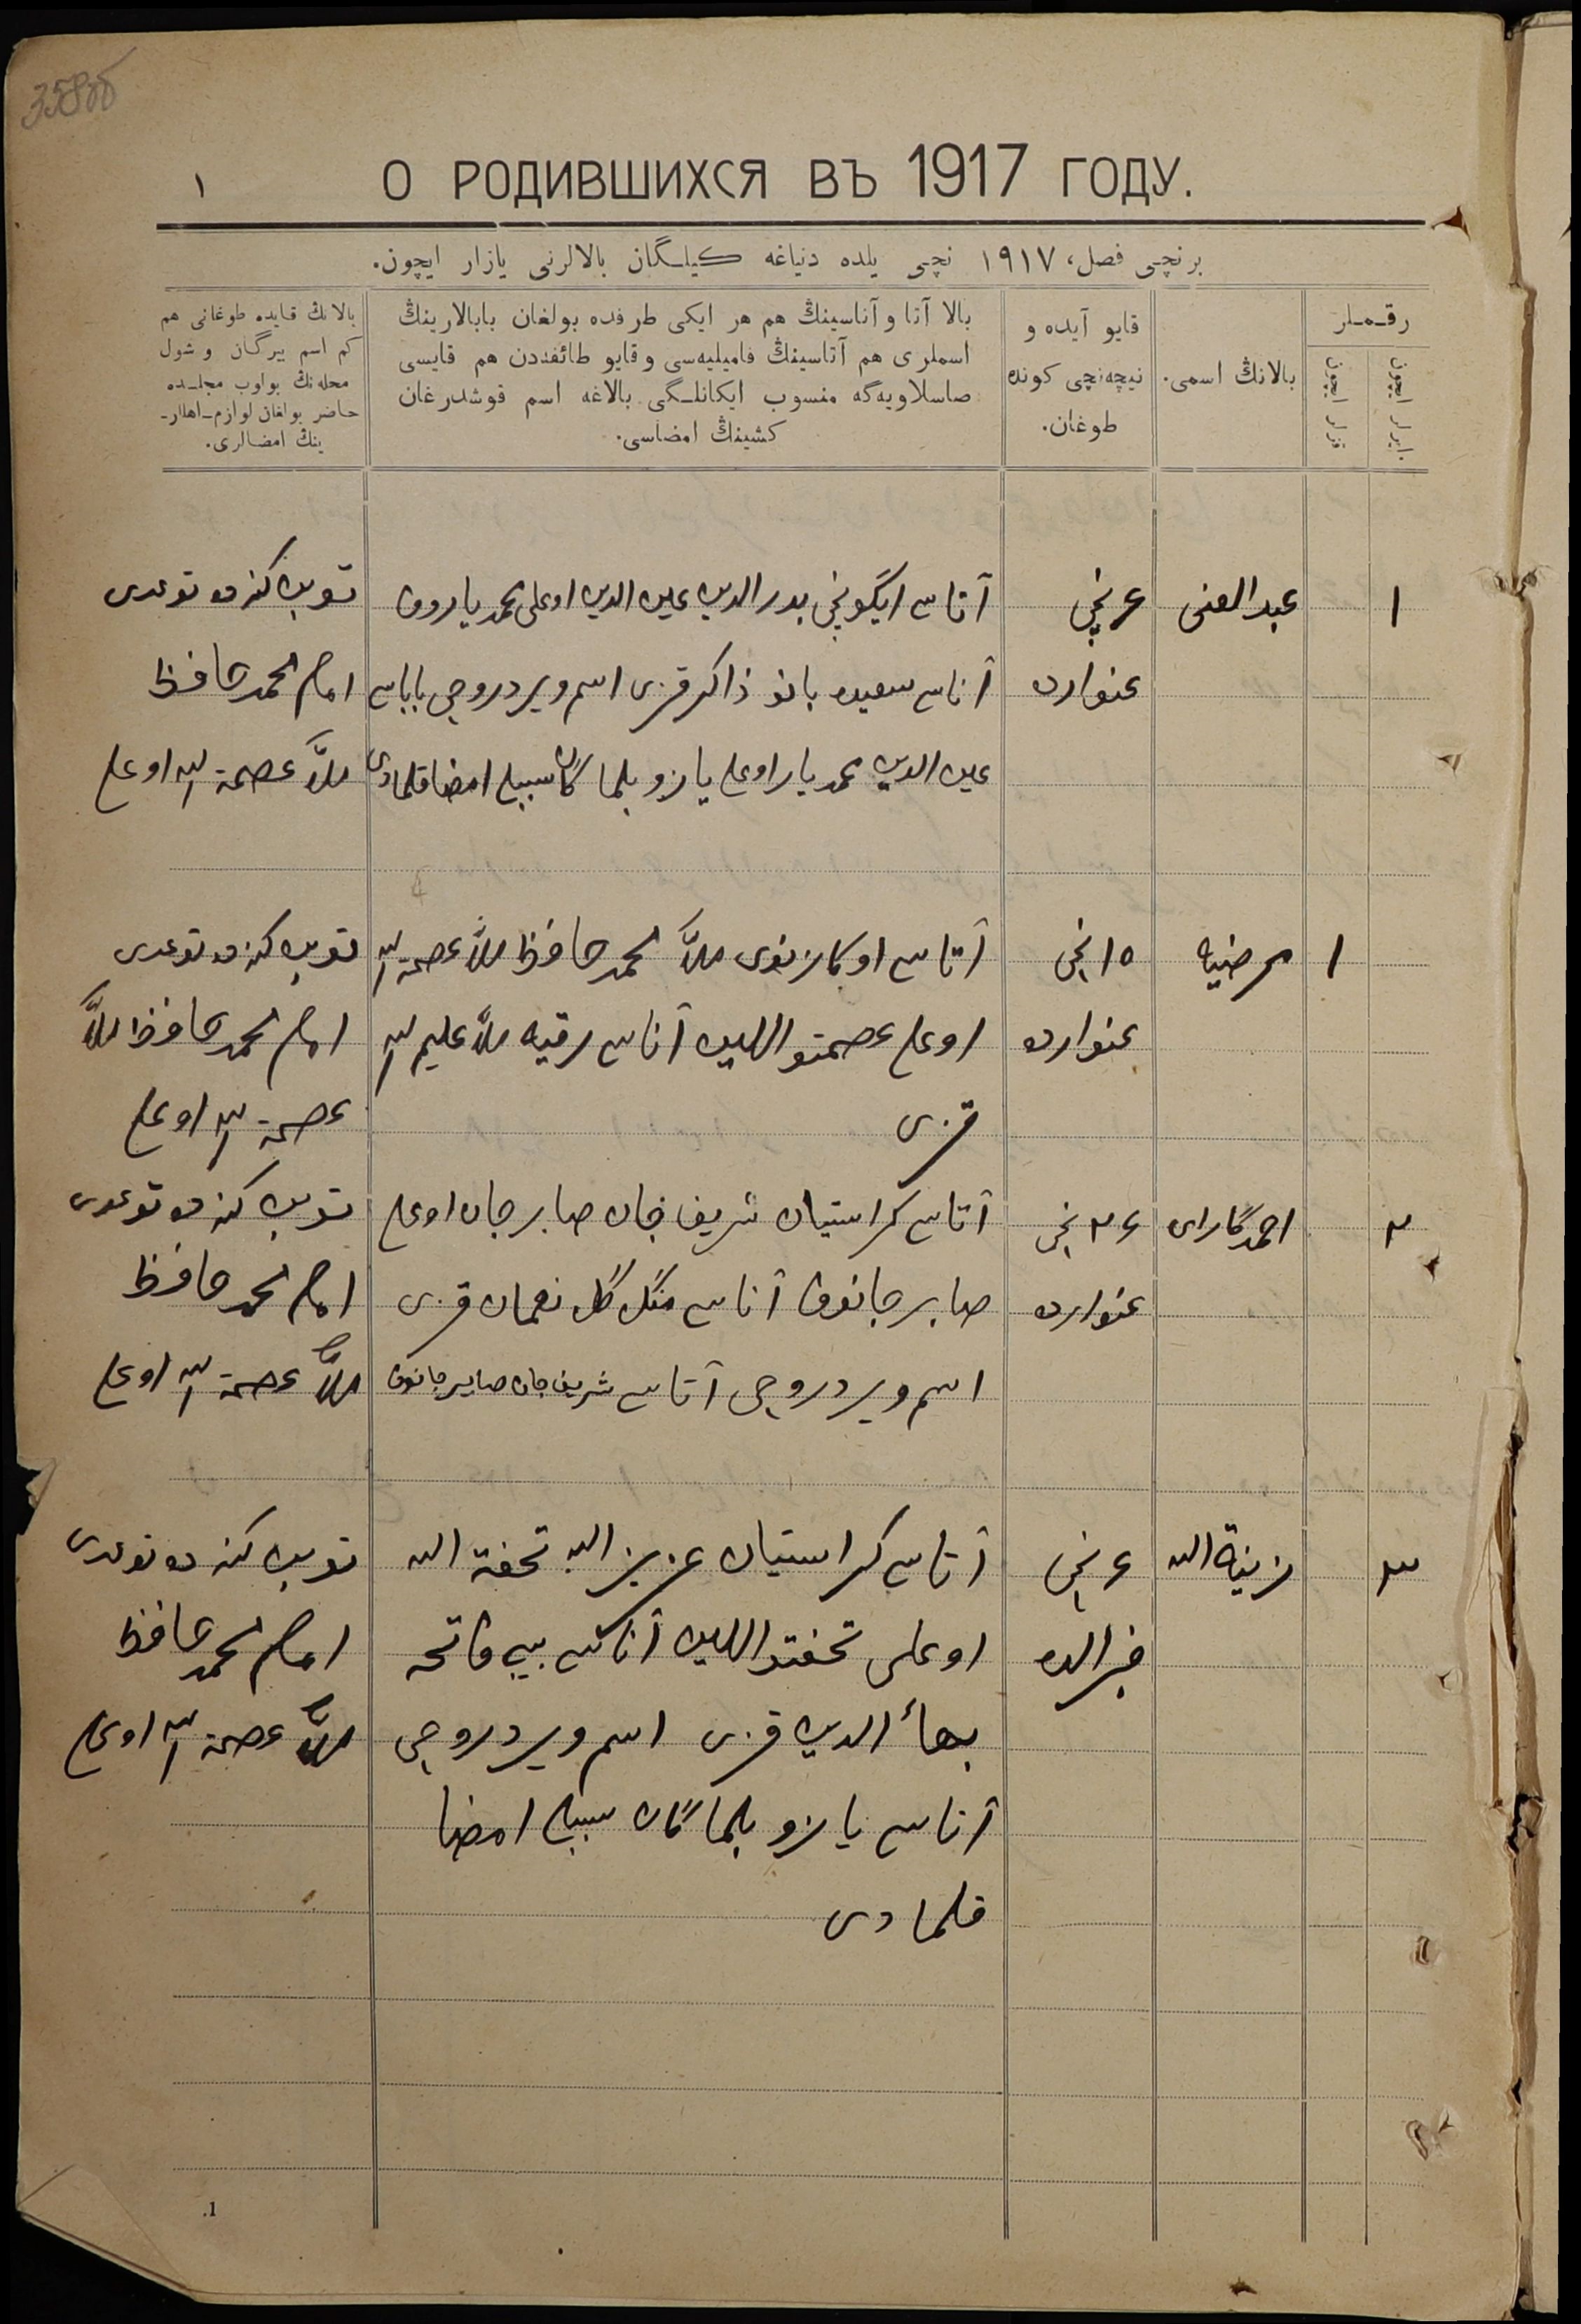 358об
О РОДИВШИХСЯ ВЪ 1917 ГОДУ.
١
برنچی فصل، ١٩١٧ نچی یلده دنیاغه کیلگان بالالرنی یازار ایچون.
رقملر
ایرلر ایچون
قزلر ایچون
بالانڭ اسمی.
قایو آیده و
نیچه‌نچی کونده
طوغان.
بالا آتا و آناسینڭ هم هر ایکی طرفده بولغان بابالارینڭ
اسملری هم آتاسینڭ فامیلیه‌سی و قایو طائفه‌دن هم قایسی
صاسلاویه‌گه منسوب ایکانلگی بالاغه اسم قوشدرغان
کشینڭ امضاسی.
بالانڭ قایده طوغانی هم
کم اسم بیرگان و شول
محله‌نڭ بولوب مجلسده
حاضر بولغان لوازم اهللر
ینڭ امضالری.
١
عبد الغنی
۴ نچی
غنوارده
آتاسی ایگونچی بدر الدین عین الدین اوغلی محمد یاروف
آناسی سعیده بانو ذاکر قزی اسم ویردروچی باباسی
عین الدین محمد یار اوغلی یازو بلماگان سببلی امضا قلمادی
کنه ده توغدی
امام محمد حافظ
ملا عصمة الله اوغلی
١
مرضیه
١٥ نچی
غنوارده
آتاسی اوکازنوی ملا محمد حافظ ملا عصمة الله
اوغلی عصمتواللین آناسی رقیه ملا علیم الله
قزی
کنه ده توغدی
امام محمد حافظ ملا
عصمة الله اوغلی
٢
احمد گارای
٢۴ نچی
غنوارده
آتاسی کراستیان شریف جان صابر جان اوغلی
صابر جانوف آناسی منگل گل نعمان قزی
اسم ویردروچی آتاسی شریف جان صابر جانوف
کنه ده توغدی
امام محمد حافظ
ملا عصمة الله اوغلی
٣
زینة الله
۴ نچی
فبرالده
آتاسی کراستیان عزیز الله تحفة الله
اوغلی تحفتواللین آناسی بیبی فاتحه
بهاء الدین قزی اسم ویردروچی
آناسی یازو بلماگان سببلی امضا
قلمادی
کنه ده توغدی
امام محمد حافظ
ملا عصمة الله اوغلی
1.